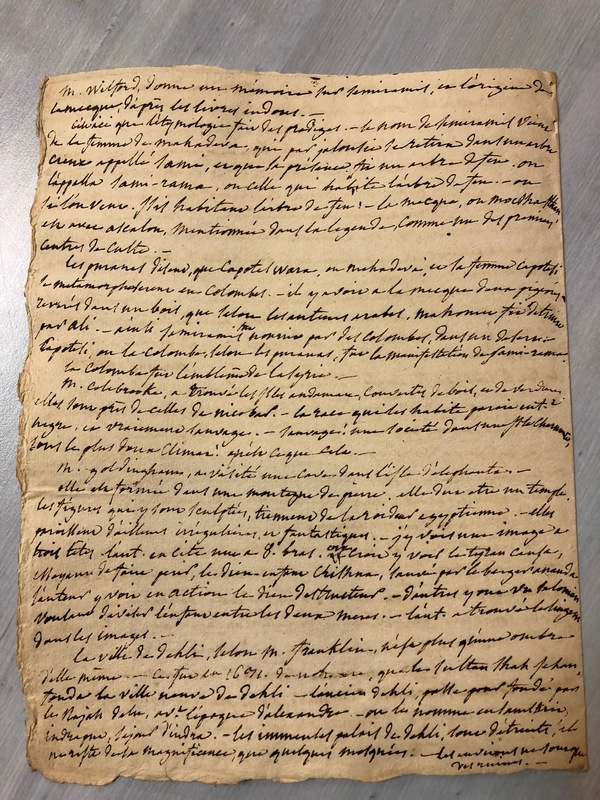 M. Wilford, donne un mémoire sur semiramis, et l'origine de
la mecque, d'après les livres indous. —
c'est ici que l'étymologie fait des prodiges. — le nom de semiramis vient
de la femme de mahadeva, qui par jalousie se retira dans un arbre
creux appellé sami, et que sa présence fit un arbre de feu. on
l'appella sami-rama, ou celle qui habite l'arbre de feu. — ou
si l'on veut. isis habitant l'arbre de feu! — la mecque, ou
est avec ascalon, mentionnée dans la legende, comme un des premiers
centres de culte. —
les puranas disent, que Capoteswara, ou mahadeva et sa femme Capotesi
se metamorphoserent en Colombes. — il y avoit a la mecque deux pigeons
reverés dans un bois, que selon les auteurs arabes, mahomet fit detruire
par ali. — ainsi semiramis nourrie par des Colombes, dans un desert —
Capotesi, ou la Colombe, selon les puranas, fut la manifestation de sami-rama
la Colombe fut l'emblême de la syrie. —
M. Colebrooke, a trouvé les isles andaman, Couvertes de bois, et de verdure
elles sont près de celles de nicobar. — la race qui les habite paroit ent.t
negre, et vraiement sauvage. — sauvage! une societé dans une isle charmante,
sous le plus doux Climat! après ce que cela —
M. goldingham, a visité une cave dans l'isle d'elephanta. —
elle est formée dans une montagne de pierre. elle dut etre un temple
les figures qui y sont sculptées, tiennent de la roideur egyptienne. — elles
paroissent d'ailleurs irrégulières, et fantastiques. — j'y vois une image a
trois têtes. l'aut. en cite une a 8. bras. on croit y voir le tyran cansa,
essayant de faire perir, le dieu enfant Crishna, sauvé par le berger ananda
l'auteur y voit en action le dieu destructeur. — d'autres y ont vu salomon
voulant diviser l'enfant entre les deux meres. — l'aut. a trouvé le lingam
dans les images. —
la ville de dehli, selon M. franklin, n'est plus qu'une ombre
d'elle meme. — Ce fut en 1631. de notre ere, que le sultan shah jehan,
fonda la ville neuve de dehli — l'ancien dehli, passe pour fondé par
le Rajah delu, av.t l'epoque d'alexandre. — on le nomme en sanskrit,
indraput, séjour d'indra. — les immenses palais de dehli, sont détruits, il
ne reste de sa magnificence, que quelques mosquées. — les environs ne sont que
des ruines. —